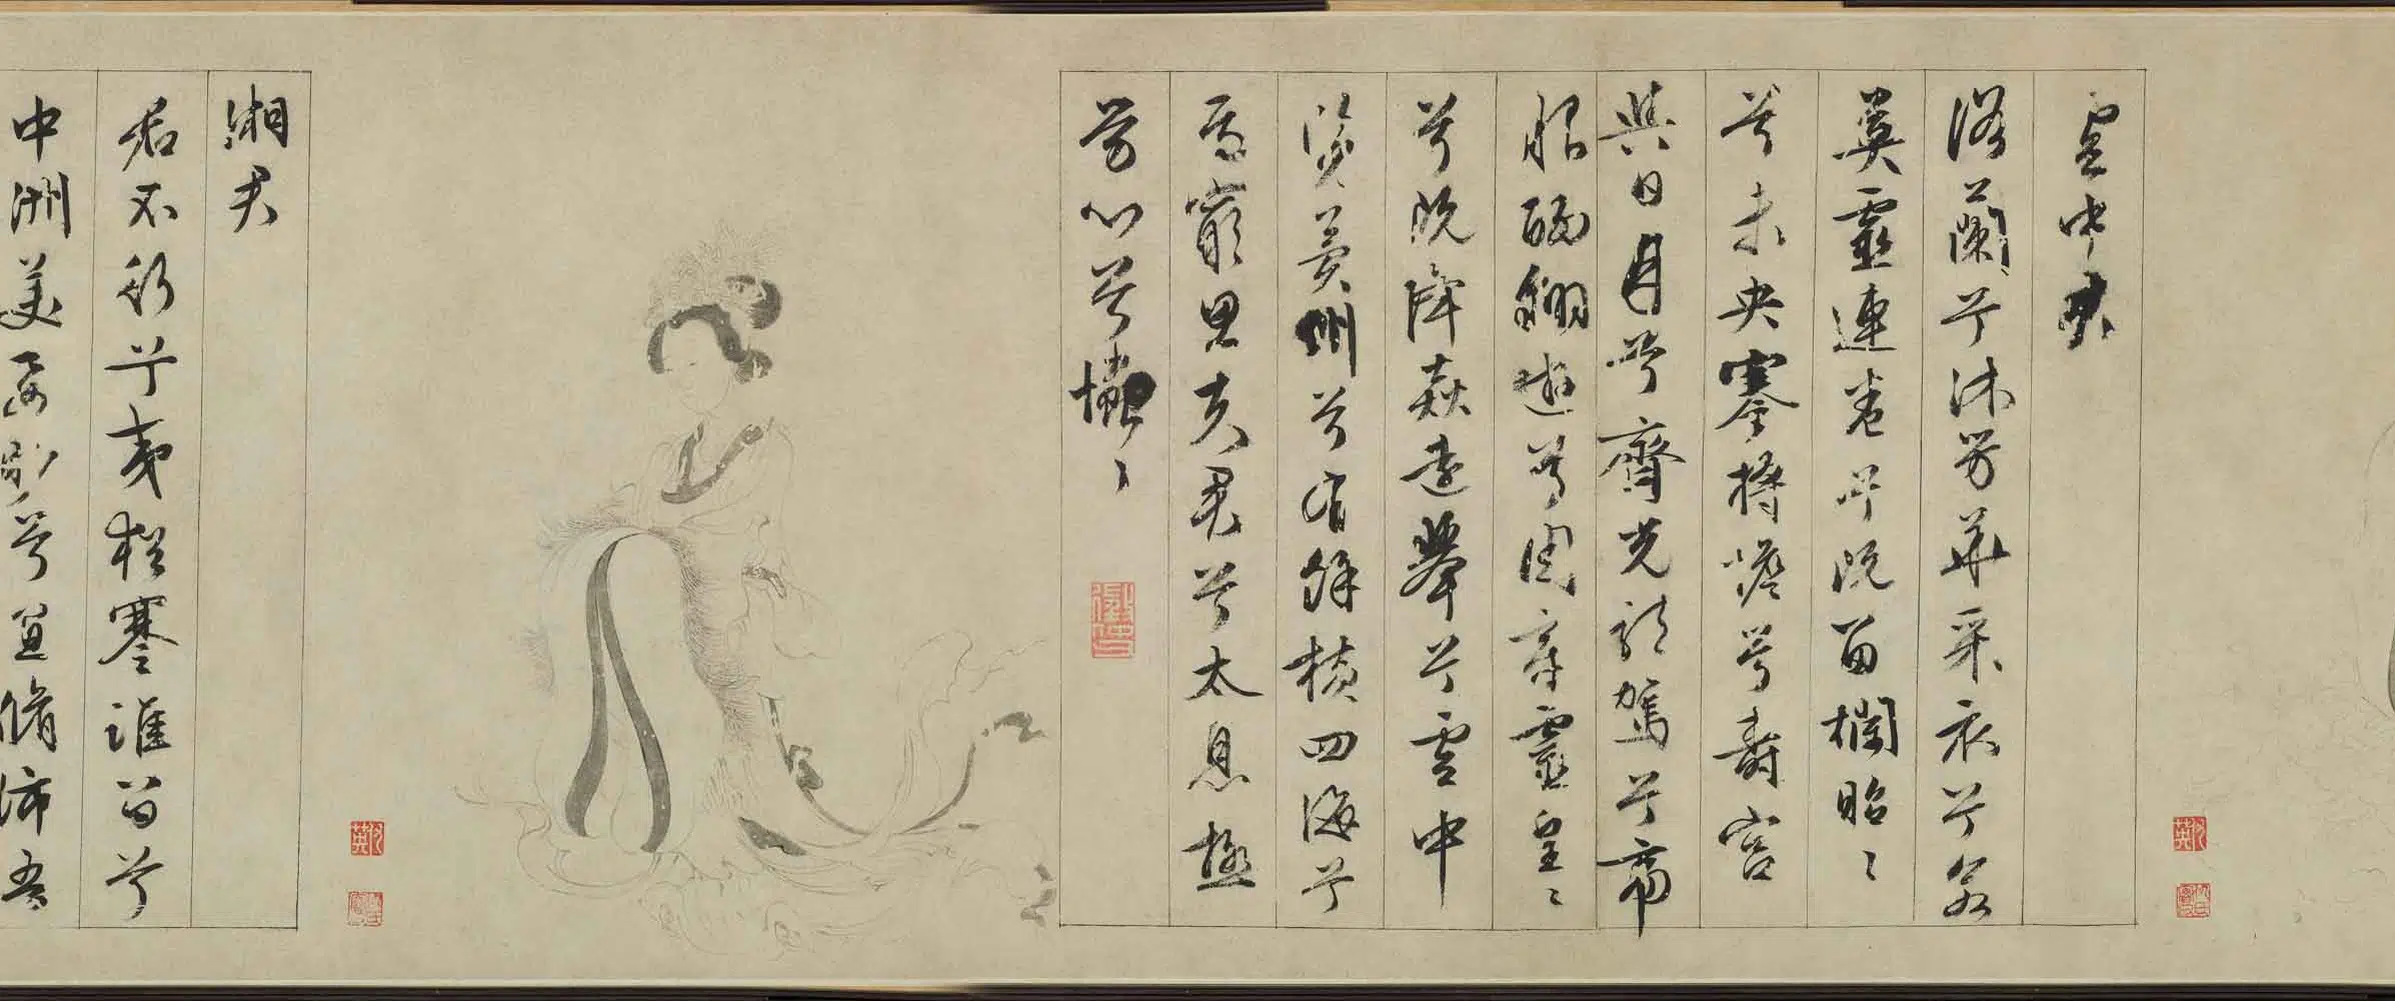 雲中君
浴蘭兮沐芳華采衣兮若
英靈連卷兮既留爛昭〻
兮未央蹇將憺兮壽宮
與日月兮齊光龍駕兮帝
服聊翱遊兮周章靈皇〻
兮既降猋遠舉兮雲中
覽冀州兮有餘橫四海兮
焉窮思夫君兮太息極
勞心兮𢥞〻
湘君
君不行兮夷猶蹇誰留兮
中洲美要眇兮宜脩沛吾